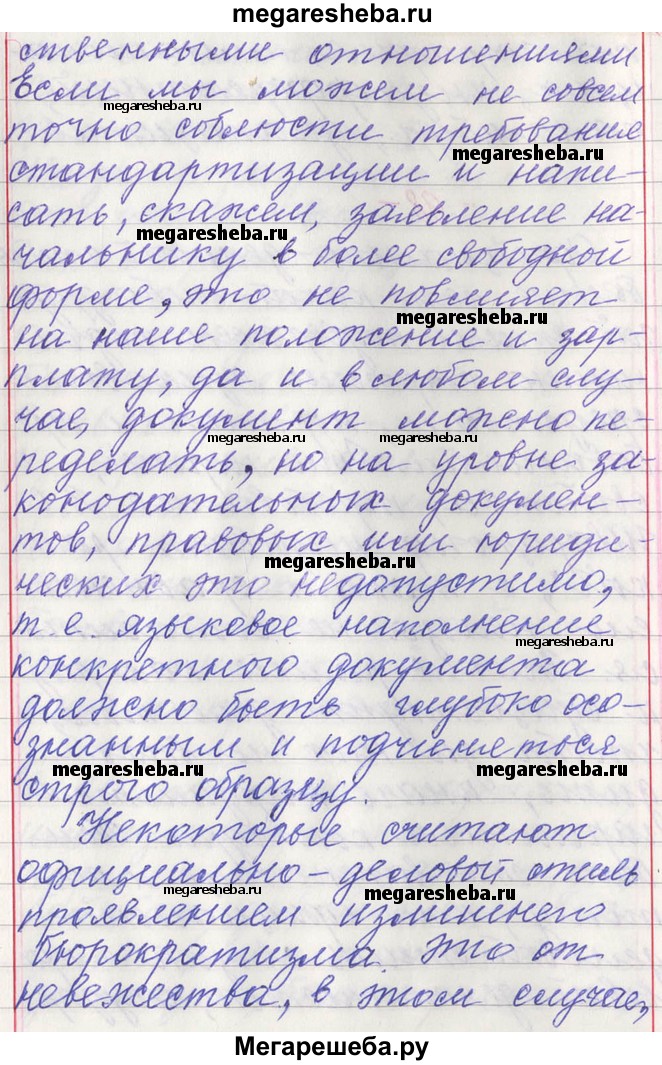 megaresheba.ru
ственными отношениями
Если мы можем не совсем
megaresheba.ru
точно соблюсти требования
megaresheba.ru
стандартизации и напи-
сать, скажем, заявление на-
megaresheba.ru
чальнику в более свободной
форме, это не повлияет
megaresheba.ru
на наше положение и зар-
плату, да и в любом слу-
чае, документ можно пе-
megaresheba.ru megaresheba.ru
ределать, но на уровне за-
конодательных докумен-
тов, правовых или юриди-
megaresheba.ru
ческих это недопустимо,
т.е. языковое наполнение
megaresheba.ru
конкретного документа
должно быть глубоко осо-
знанным и подчиняться
megaresheba.ru megaresheba.ru
строго образцу.
Некоторые считают
официально-деловой стиль
megaresheba.ru megaresheba.ru
проявлением излишнего
бюрократизма. Это от
невежества, в этом случае,
Мегарешеба.ру